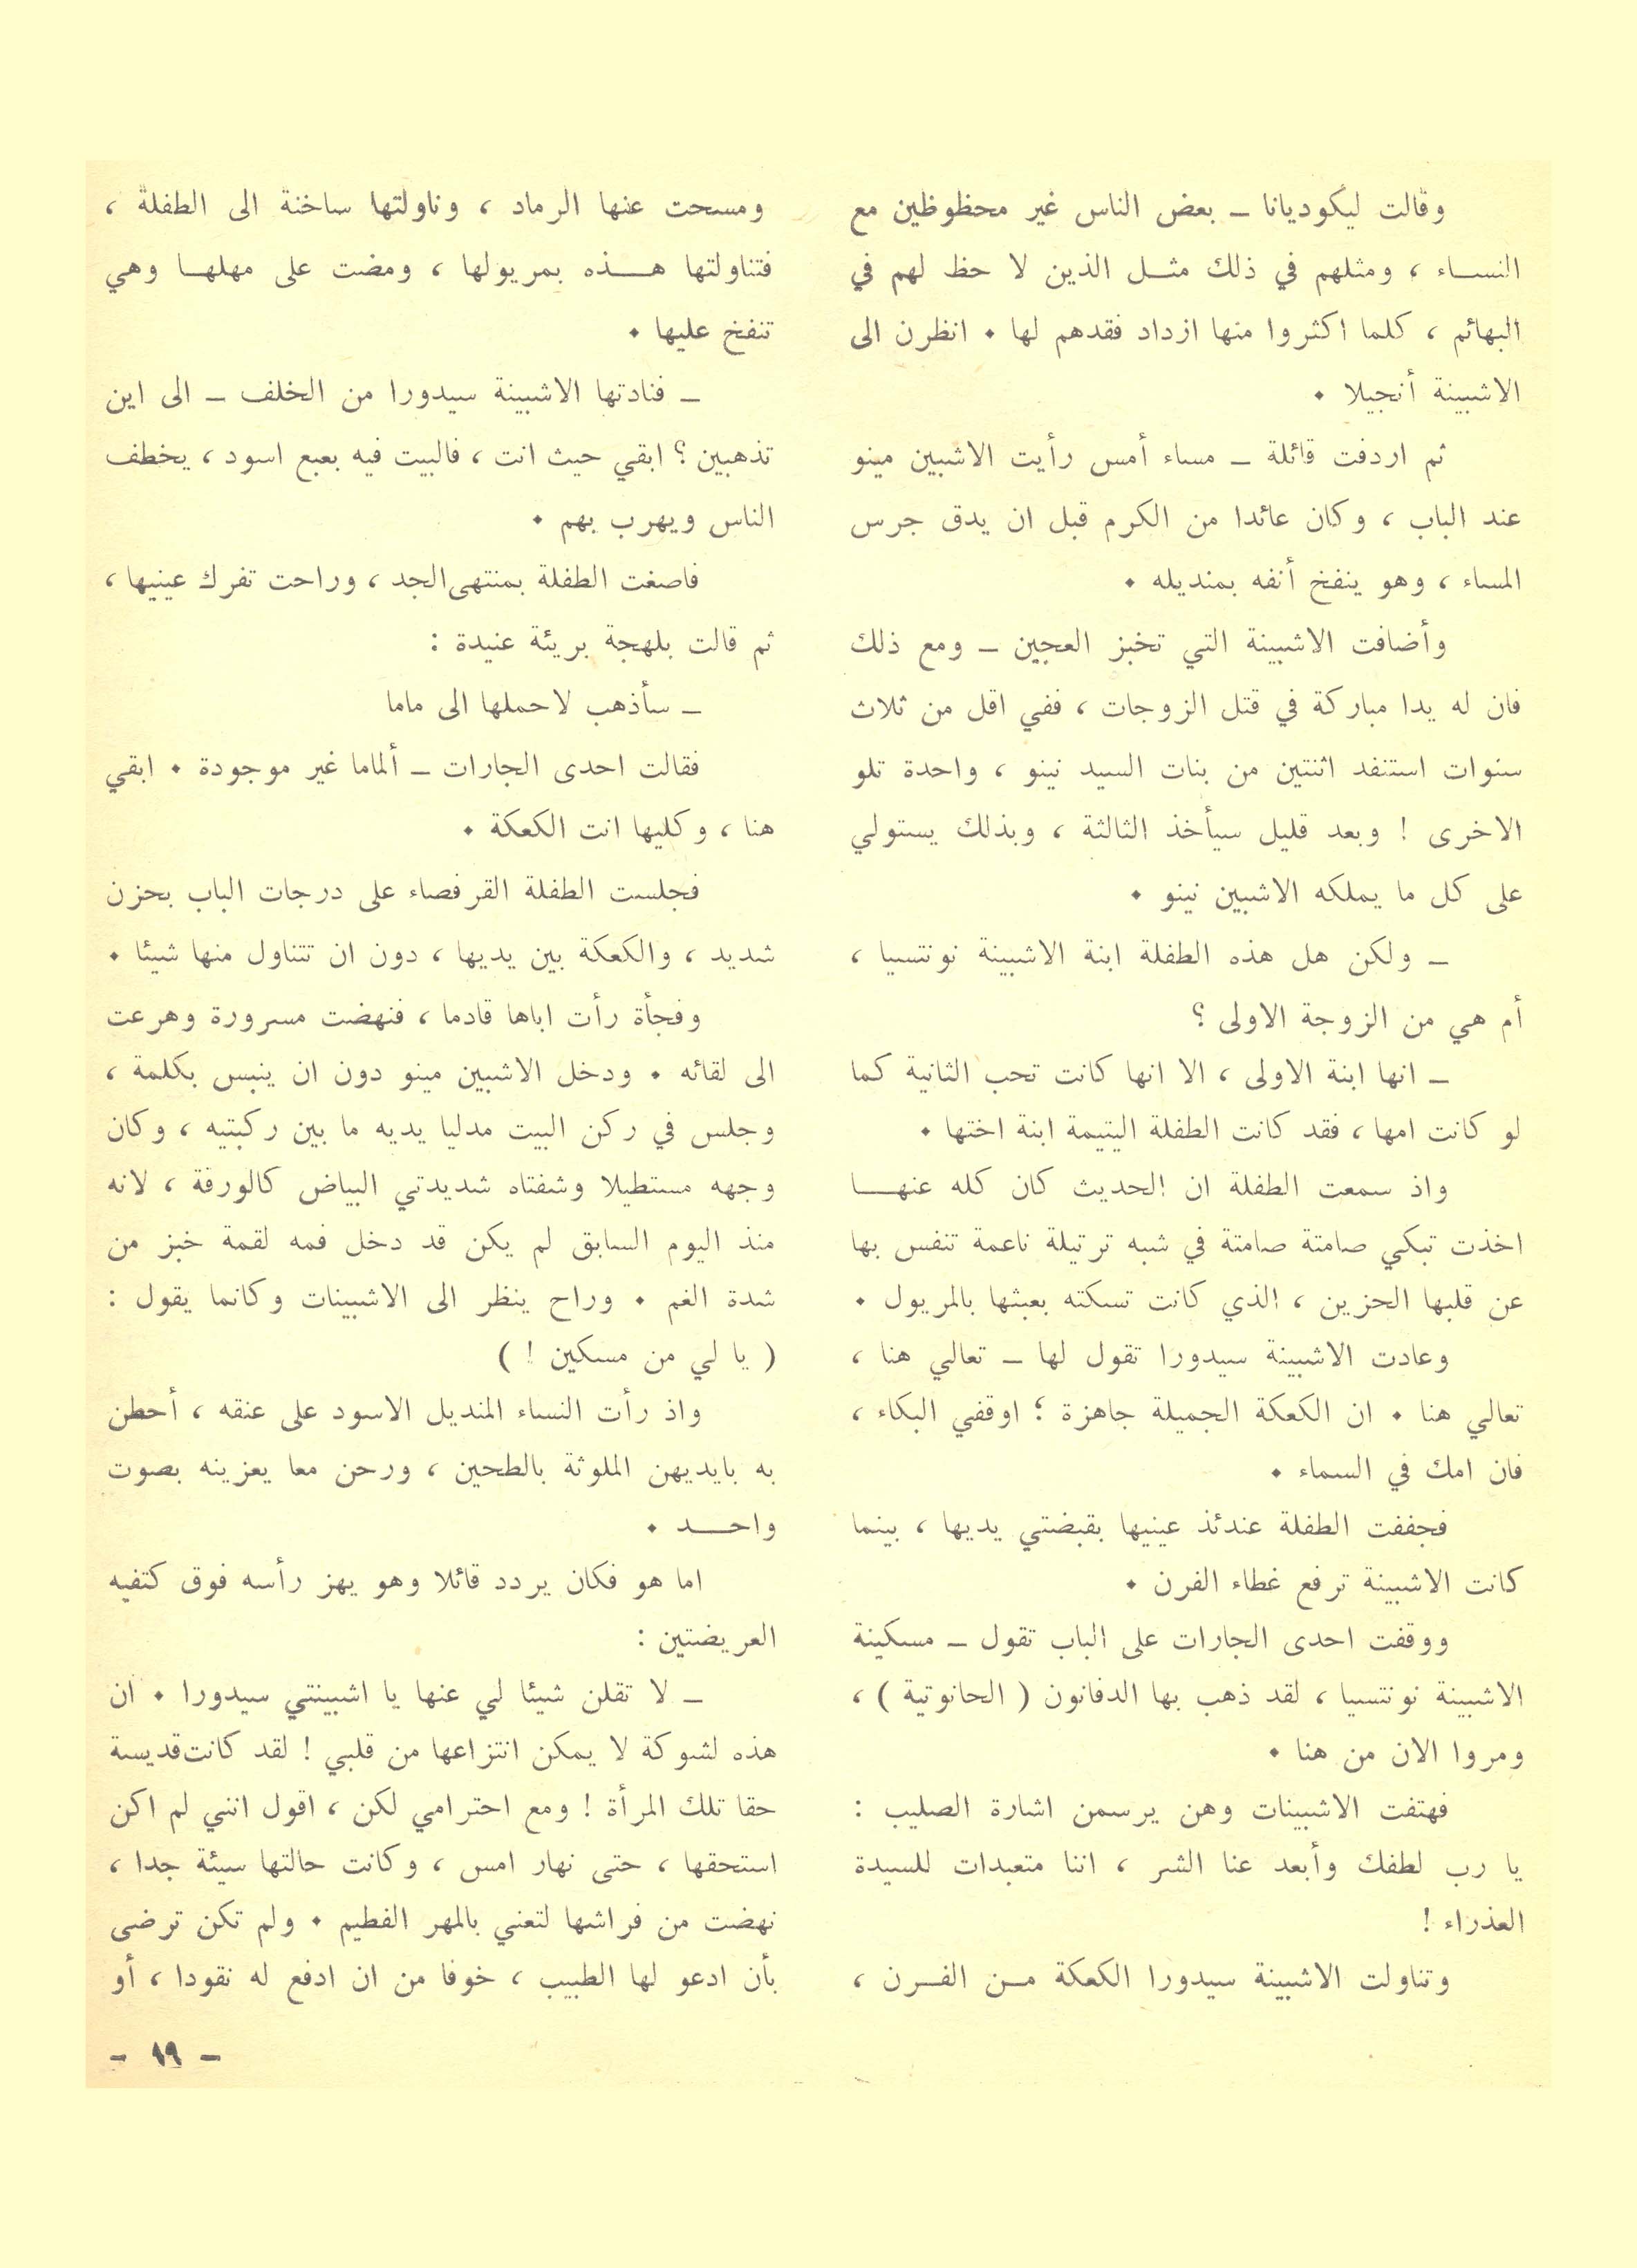 وقالت ليكوديانا ـ بعض الناس غير محظوظين مع
النساء ، ومثلهم في ذلك مثل الذين لا حظ لهم في
البهائم ، كلما اكثروا منها ازداد فقدهم لها . انظرن الى
الاشبينة أنجيلا .
ثم اردفت قائلة ـ مساء أمس رأيت الاشبين مينو
عند الباب ، وكان عائدا من الكرم قبل ان يدق جرس
المساء ، وهو ينفخ أنفه بمنديله .
وأضافت الاشبينة التي تخبز العجين ـ ومع ذلك
فان له يدا مباركة في قتل الزوجات ، ففي اقل من ثلاث
سنوات استنفد اثنتين من بنات السيد نينو ، واحدة تلو
الاخرى ! وبعد قليل سيأخذ الثالثة ، وبذلك يستولي
على كل ما يملكه الاشبين نينو .
ـ ولكن هل هذه الطفلة ابنة الاشبينة نونتسيا ،
أم هي من الزوجة الاولى ؟
ـ انها ابنة الاولى ، الا انها كانت تحب الثانية كما
لو كانت امها ، فقد كانت الطفلة اليتيمة ابنة اختها .
واذ سمعت الطفلة ان الحديث كان كله عنها
اخذت تبكي صامتة صامتة في شبه ترتيلة ناعمة تنفس بها
عن قلبها الحزين ، الذي كانت تسكته بعبثها بالمريول .
وعادت الاشبينة سيدورا تقول لها ـ تعالي هنا ،
تعالي هنا . ان الكعكة الجميلة جاهزة ؛ اوقفي البكاء ،
فان امك في السماء .
فجففت الطفلة عندئذ عينيها بقبضتي يديها ، بينما
كانت الاشبينة ترفع غطاء الفرن .
ووقفت احدى الجارات على الباب تقول ـ مسكينة
الاشبينة نونتسيا ، لقد ذهب بها الدفانون ( الحانوتية ) ،
ومروا الان من هنا .
فهتفت الاشبينات وهن يرسمن اشارة الصليب :
يا رب لطفك وأبعد عنا الشر ، اننا متعبدات للسيدة
العذراء !
وتناولت الاشبينة سيدورا الكعكة من الفرن ،
ومسحت عنها الرماد ، وناولتها ساخنة الى الطفلة ،
فتناولتها هذه بمريولها ، ومضت على مهلها وهي
تنفخ عليها .
ـ فنادتها الاشبينة سيدورا من الخلف ـ الى اين
تذهبين ؟ ابقي حيث انت ، فالبيت فيه بعبع اسود ، يخطف
الناس ويهرب بهم .
فاصغت الطفلة بمنتهى الجد ، وراحت تفرك عينيها ،
ثم قالت بلهجة بريئة عنيدة :
ـ سأذهب لاحملها الى ماما
فقالت احدى الجارات ـ ألماما غير موجودة . ابقي
هنا ، وكليها انت الكعكة .
فجلست الطفلة القرفصاء على درجات الباب بحزن
شديد ، والكعكة بين يديها ، دون ان تتناول منها شيئا .
وفجأة رأت اباها قادما ، فنهضت مسرورة وهرعت
الى لقائه . ودخل الاشبين مينو دون ان ينبس بكلمة ،
وجلس في ركن البيت مدليا يديه ما بين ركبتيه ، وكان
وجهه مستطيلا وشفتاه شديدتي البياض كالورقة ، لانه
منذ اليوم السابق لم يكن قد دخل فمه لقمة خبز من
شدة الغم . وراح ينظر الى الاشبينات وكانما يقول :
( يا لي من مسكين ! )
واذ رأت النساء المنديل الاسود على عنقه ، أحطن
به بايديهن الملوثة بالطحين ، ورحن معا يعزينه بصوت
واحد .
اما هو فكان يردد قائلا وهو يهز رأسه فوق كتفيه
العريضتين :
ـ لا تقلن شيئا لي عنها يا اشبينتي سيدورا . ان
هذه لشوكة لا يمكن انتزاعها من قلبي ! لقد كانت قديسة
حقا تلك المرأة ! ومع احترامي لكن ، اقول انني لم اكن
استحقها ، حتى نهار امس ، وكانت حالتها سيئة جدا ،
نهضت من فراشها لتعني بالمهر الفطيم . ولم تكن ترضى
بأن ادعو لها الطبيب ، خوفا من ان ادفع له نقودا ، أو
ـ ١٩ ـ